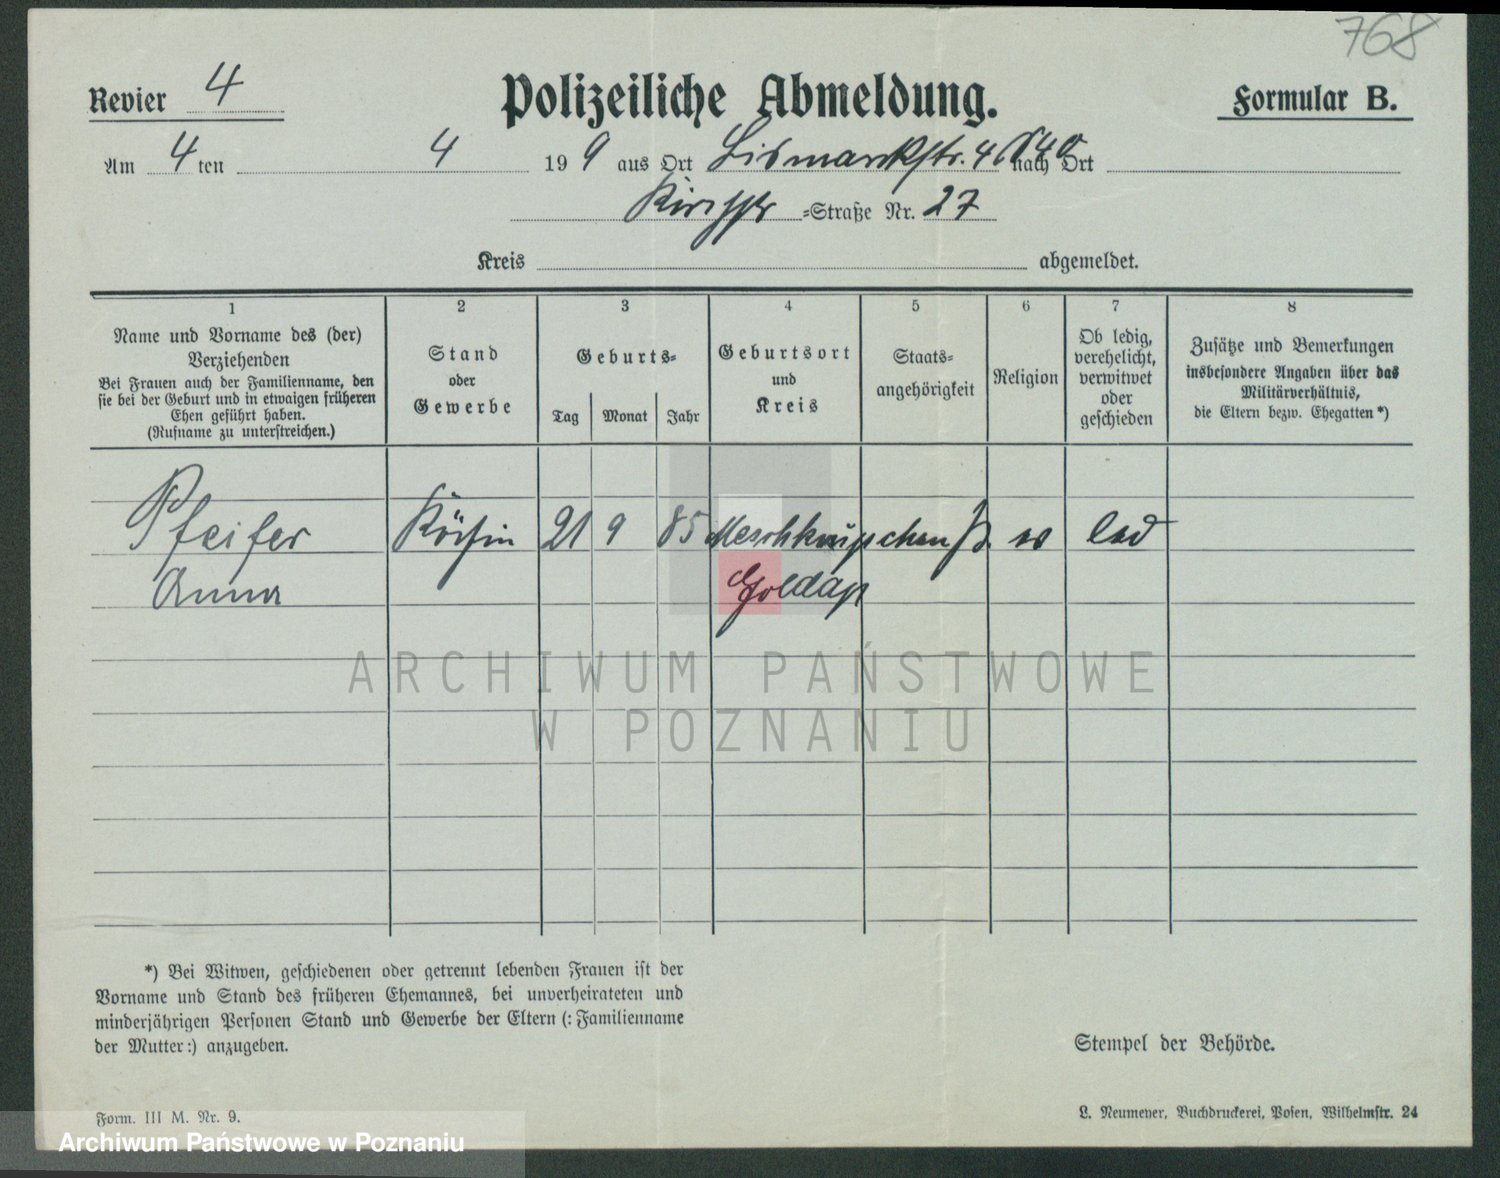 768
Revier 4
Polizeiliche Abmeldung.
Formular B.
Am 4 ten 4 19 9 aus Ort Bismarckstr. 4 nach Ort
-Straße Nr. 27
Kreis abgemeldet.
1 2 3 4 5 6 7 8
Name und Vorname des (der)
Verziehenden
Bei Frauen auch der Familienname, den
sie bei der Geburt und in etwaigen früheren
Ehen geführt haben.
(Rufname zu unterstreichen.)
Stand
oder
Gewerbe
Geburts-
Tag Monat Jahr
Geburtsort
und
Kreis
Staats-
angehörigkeit
Religion
Ob ledig,
verehelicht,
verwitwet
oder
geschieden
Zusätze und Bemerkungen
insbesondere Angaben über das
Militärverhältnis,
die Eltern bezw. Ehegatten*)
Pfeifer Köchin 21 9 85 led
Anna Goldap
ARCHIWUM PAŃSTWOWE
W POZNANIU
*) Bei Witwen, geschiedenen oder getrennt lebenden Frauen ist der
Vorname und Stand des früheren Ehemannes, bei unverheirateten und
minderjährigen Personen Stand und Gewerbe der Eltern (: Familienname
der Mutter:) anzugeben.
Stempel der Behörde.
Form. III M. Nr. 9.
L. Neumeyer, Buchdruckerei, Posen, Wilhelmstr. 24
Archiwum Państwowe w Poznaniu